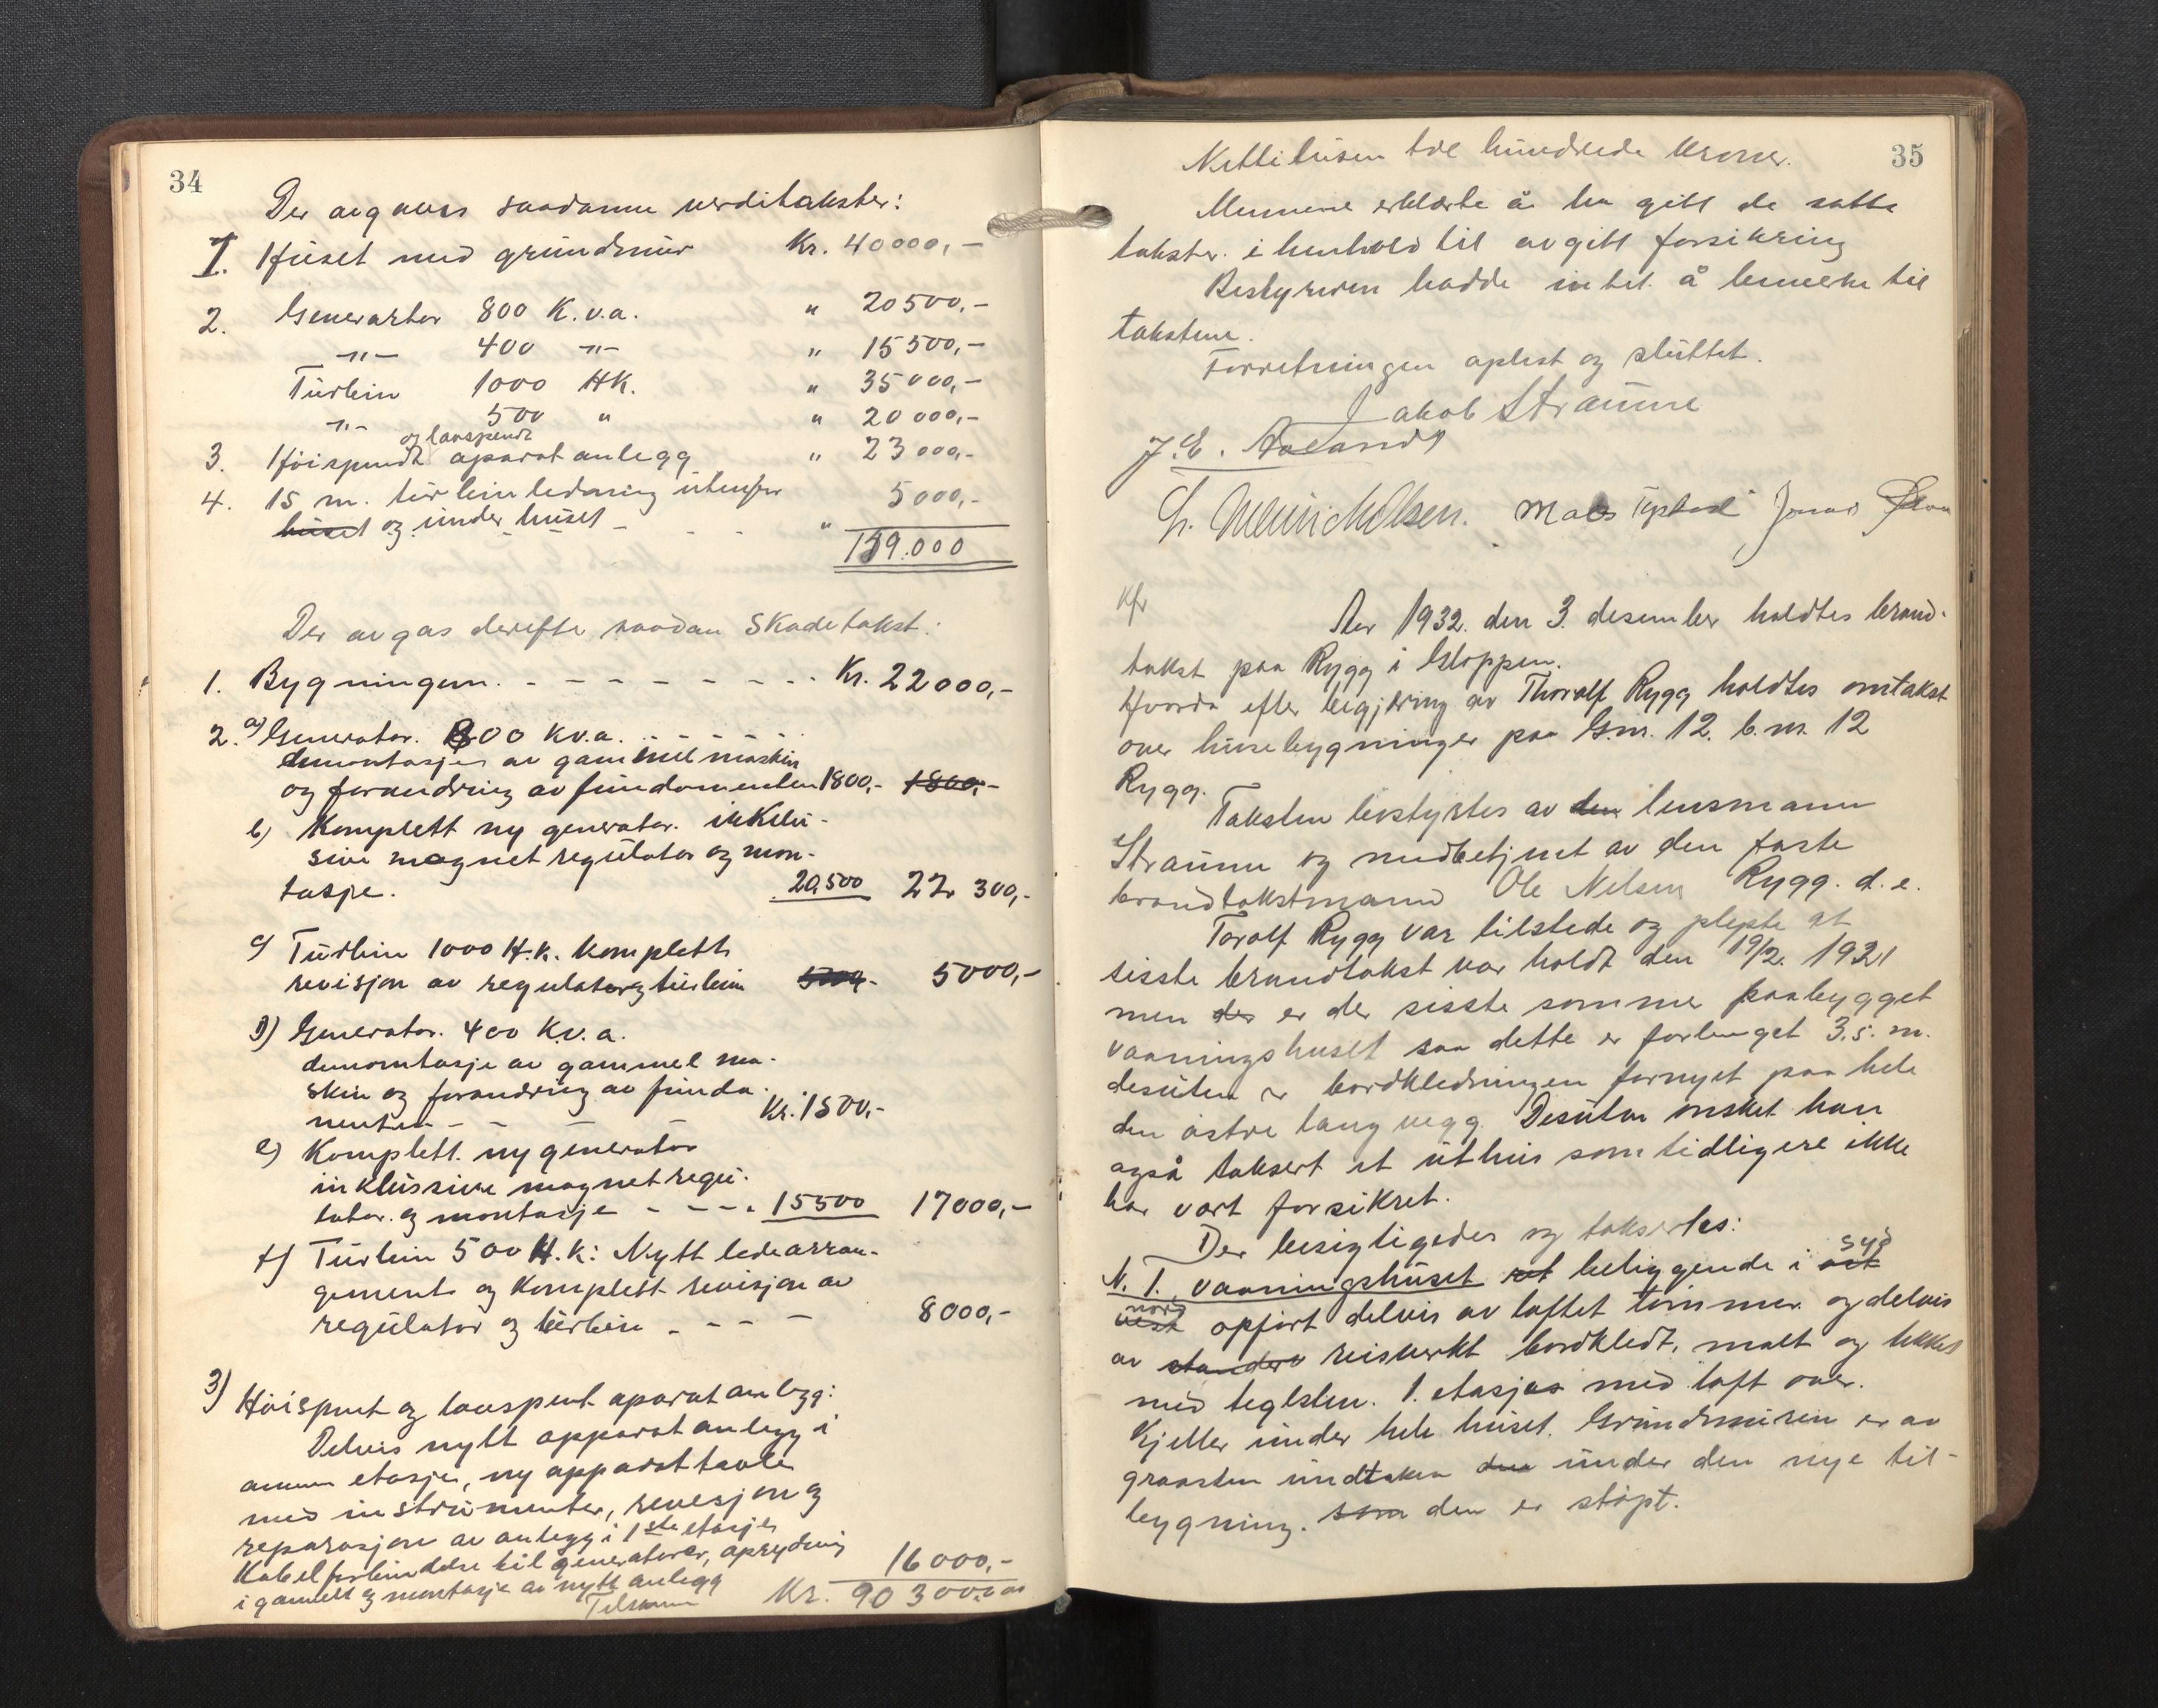 34
Der avgaves saadanne verditakster:
I. Huset med grundmur Kr. 40000,-
2. Generator 800 K.v.a. " 20500,-
-"- 400 -"- " 15500,-
Turbin 1000 HK. " 35000,-
-"- 500 " " 20000,-
og lavspendt
3. Höispendt aparatanlegg " 23000,-
4. 15 m. turbinledning utenfor 5000,-
huset og under huset - - - "
159.000
Der avgas derefter saadan Skadetakst:
1. Bygningen. - - - - - - - - Kr. 22000,-
2. a) Generator. 800 Kv.a. - - - - - -
demontasje av gammel maskin
og forandring av fundamenten 1800,- 1800,-
b) Komplett ny generator. inklu-
sive magnetregulator og mon-
tasje. 20500 22 300,-
c) Turbin 1000 H.K. komplett
revisjon av regulator og turbin 5000,- 5000,-
d) Generator. 400 K.v.a.
demontasje av gammel ma-
skin og forandring av funda-
menter - - - Kr. 1500,-
e) Komplett ny generator
inklussive magnetregu-
lator og montasje - - - - 15500 17000,-
f) Turbin 500 H.K: Nytt ledearran-
gement og komplett revisjon av
regulator og turbin - - - - 8000,-
3) Höispent og lavspent aparatanlegg:
Delvis nytt apparatanlegg i
annen etasje, ny apparattavle
med instrumenter, revesjon og
reparasjon av anlegg i 1ste etasje
Kabelforbindelse til generatorer, oprydning
i gammelt og montasje av nytt anlegg 16000,-
Tilsammen Kr. 90 300,00
35
Nittitusen tre hundrede kroner.
Mennene erklærte å ha gitt de satte
takster i henhold til avgitt forsikring
Bestyreren hadde intet å bemerke til
takstene.
Forretningen oplest og sluttet.
Jakob Straume
J.E. Aaland
Mads Jonas
Kfr
Aar 1932. den 3. desember holdtes brand-
takst paa Rygg i Gloppen.
Hvorda efter begjæring av Thoralf Rygg holdtes omtakst
over husebygninger paa G.nr. 12. b.nr. 12
Rygg.
Taksten bestyrtes av den lensmann
Straume og medbetjent av den faste
brandtakstmann Ole Nilsen Rygg. d.e.
Toralf Rygg var tilstede og oplyste at
sisste brandtakst var holdt den 19/2. 1921
men der er der sisste sommer paabygget
vaaningshuset saa dette er forlenget 3.5. m.
desuten er bordkledningen fornyet paa hele
den östre langvegg. Desuten önsket han
også taksert et uthus som tidligere ikke
har vært forsikret.
Der besigtigedes og takseres:
N. 1. vaaningshuset ret beliggende i öst syd
vest nord opfört delvis av laftet tömmer og delvis
av standere reisverkt bordkledt, malt og tekket
med teglsten. 1. etasjes med loft over.
Kjeller under hele huset. Grundmuren er av
graasten undtaken den under den nye til-
bygning. som den er stöpt.